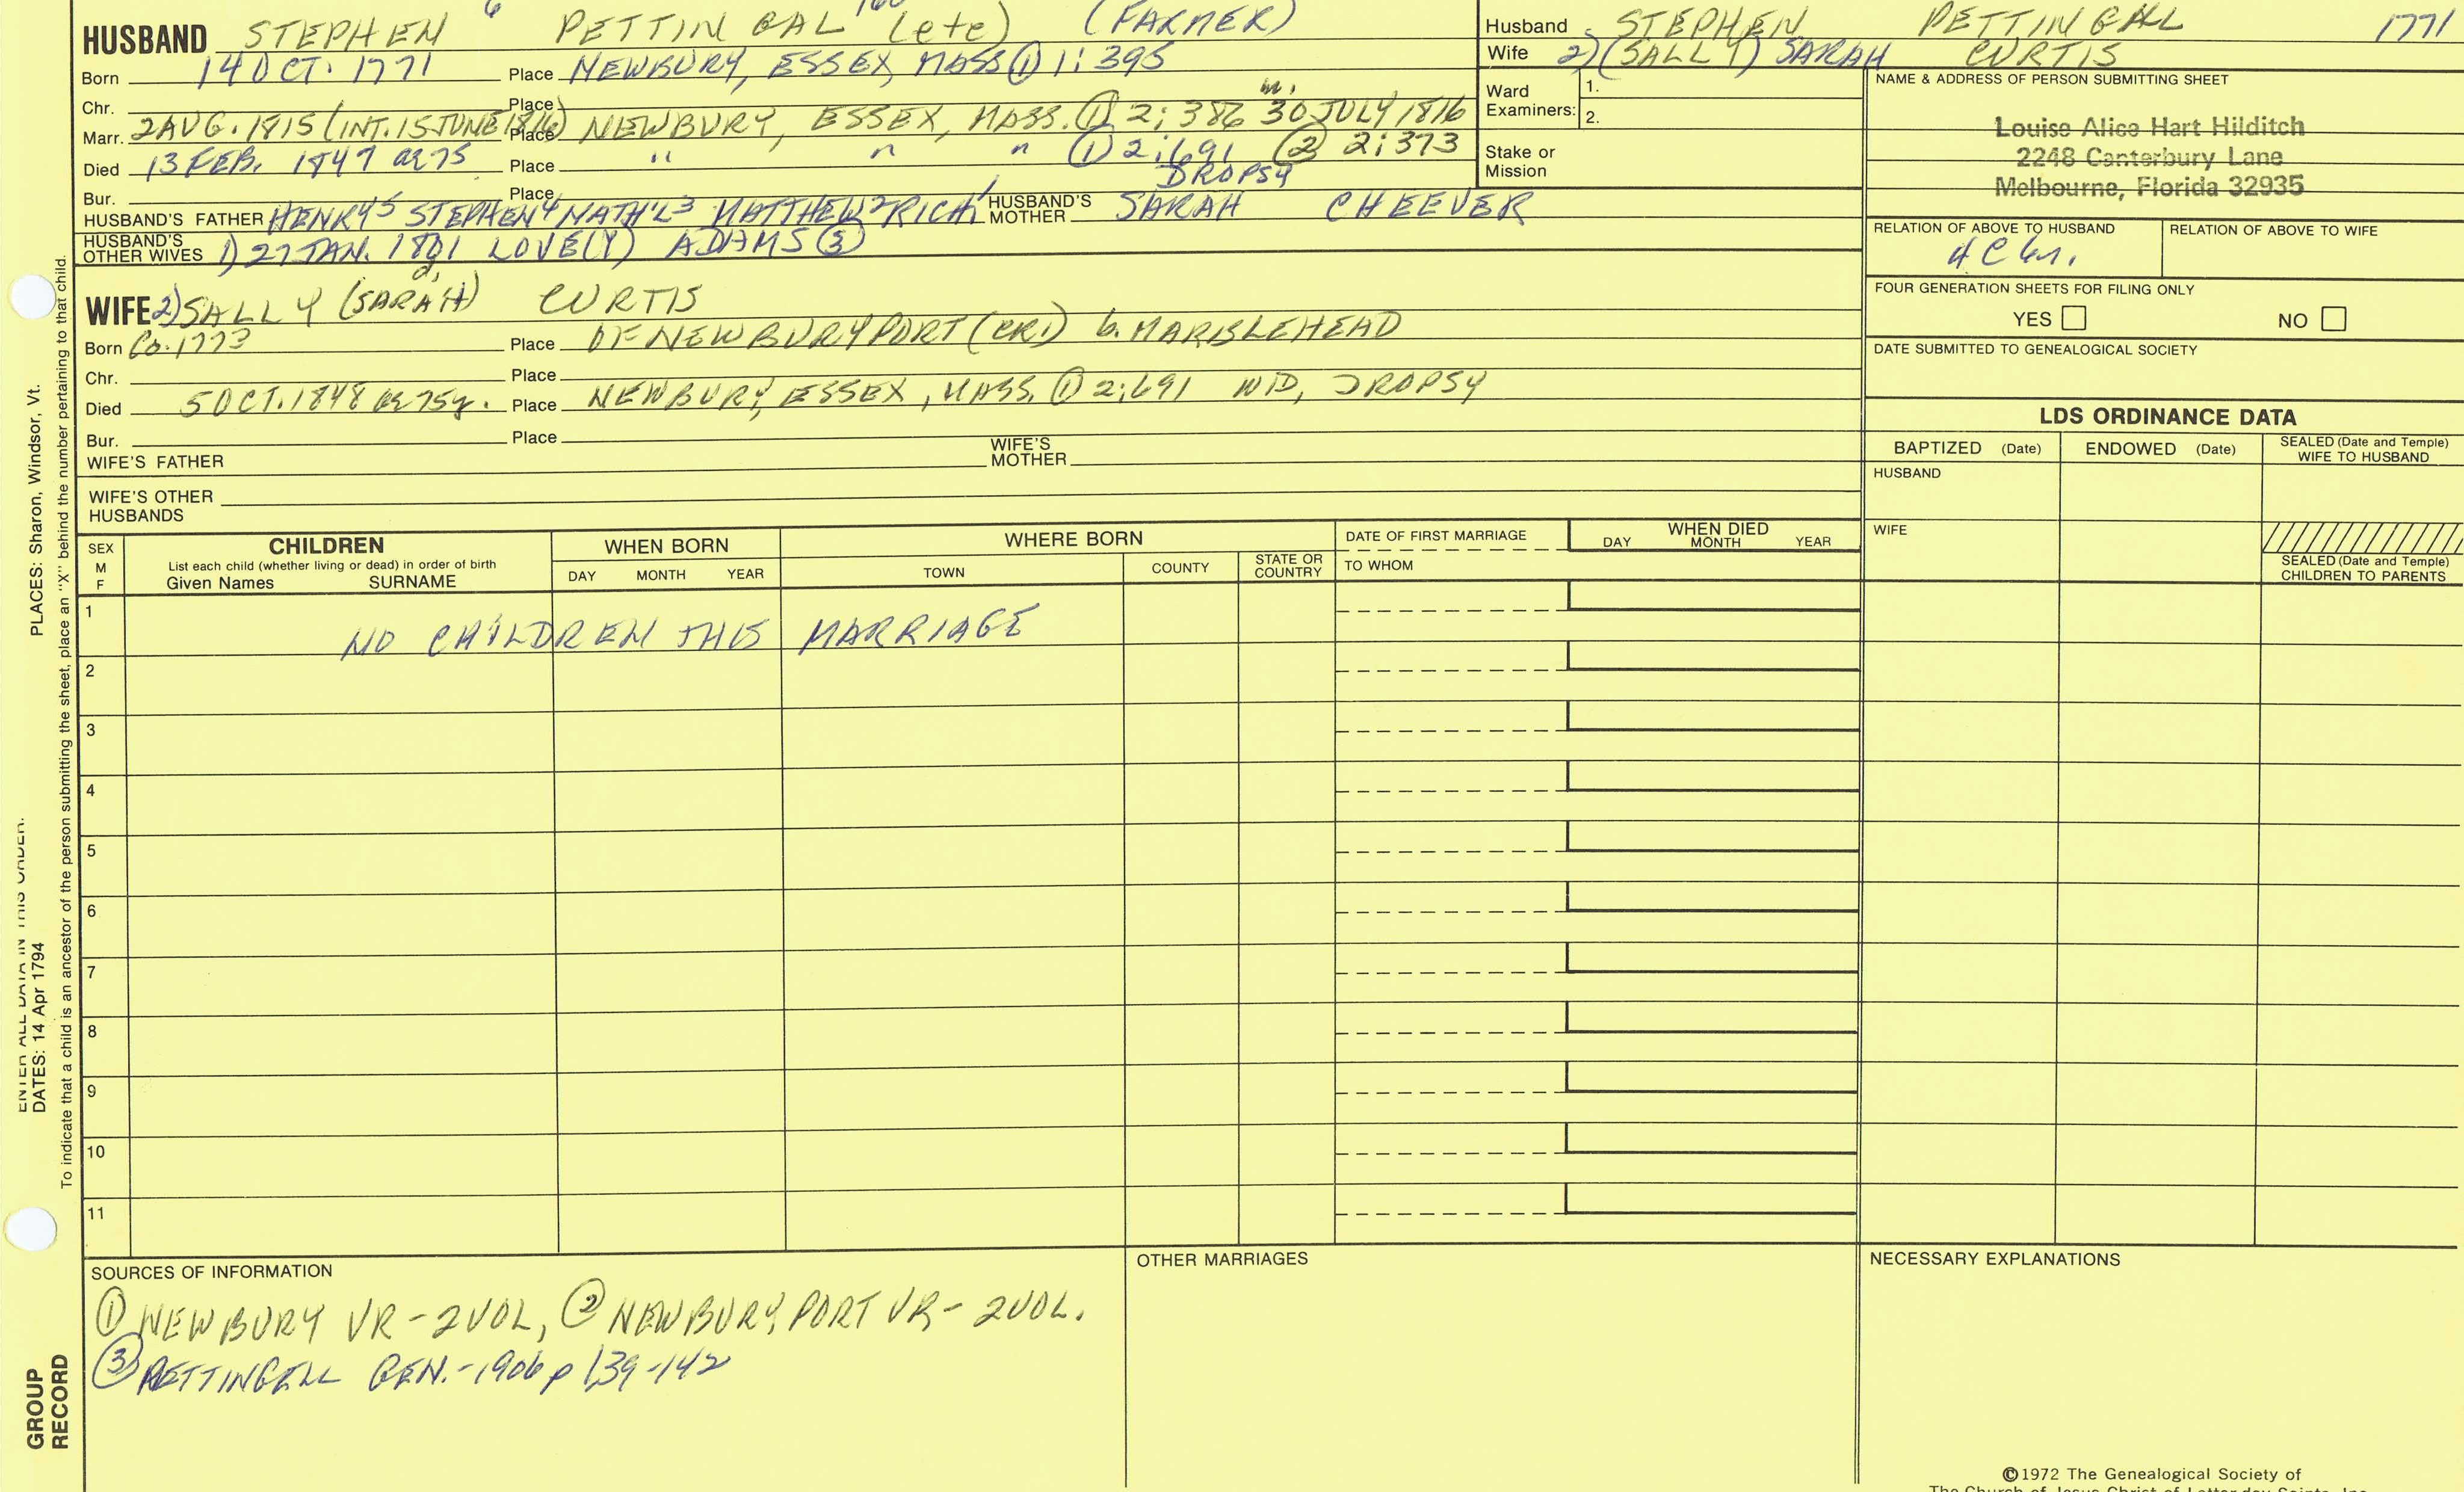 HUSBAND STEPHEN 6 PETTINGAL (ete) (FARMER)
Born 14 OCT. 1771 Place NEWBURY, ESSEX, MASS ① 1:395
Chr. Place
Marr. 2 AUG. 1815 (INT. 15 JUNE 1816) Place NEWBURY, ESSEX, MASS. ① 2:386 m. 30 JULY 1816
Died 13 FEB. 1847 ae 75 Place " " " ① 2:691 ② 2:373
DROPSY
Bur. Place
HUSBAND'S FATHER HENRY5 STEPHEN4 NATH'L3 MATTHEW2 RICH1 HUSBAND'S MOTHER SARAH CHEEVER
HUSBAND'S OTHER WIVES 1) 27 JAN. 1801 LOVE(Y) ADAMS ③
WIFE 2) SALLY (SARAH) CURTIS
Born Ca. 1773 Place OF NEWBURYPORT (CR1) b. MARBLEHEAD
Chr. Place
Died 5 OCT. 1848 ae 75y. Place NEWBURY, ESSEX, MASS. ① 2:691 WID, DROPSY
Bur. Place
WIFE'S FATHER WIFE'S MOTHER
WIFE'S OTHER HUSBANDS
Husband STEPHEN PETTINGALL 1771
Wife 2) (SALLY) SARAH CURTIS
Ward Examiners: 1.
2.
Stake or Mission
NAME & ADDRESS OF PERSON SUBMITTING SHEET
Louise Alice Hart Hilditch
2248 Canterbury Lane
Melbourne, Florida 32935
RELATION OF ABOVE TO HUSBAND RELATION OF ABOVE TO WIFE
FOUR GENERATION SHEETS FOR FILING ONLY
YES NO
DATE SUBMITTED TO GENEALOGICAL SOCIETY
LDS ORDINANCE DATA
BAPTIZED (Date) ENDOWED (Date) SEALED (Date and Temple) WIFE TO HUSBAND
HUSBAND
WIFE
SEALED (Date and Temple) CHILDREN TO PARENTS
SEX M F
CHILDREN
List each child (whether living or dead) in order of birth
Given Names SURNAME
WHEN BORN
DAY MONTH YEAR
WHERE BORN
TOWN COUNTY STATE OR COUNTRY
DATE OF FIRST MARRIAGE
TO WHOM
WHEN DIED
DAY MONTH YEAR
1 NO CHILDREN THIS MARRIAGE
2
3
4
5
6
7
8
9
10
11
SOURCES OF INFORMATION
① NEWBURY VR - 2 VOL, ② NEWBURYPORT VR - 2 VOL.
③ PETTINGELL GEN. - 1906 p 139-142
OTHER MARRIAGES
NECESSARY EXPLANATIONS
©1972 The Genealogical Society of
The Church of Jesus Christ of Latter-day Saints, Inc.
PLACES: Sharon, Windsor, Vt.
ENTER ALL DATA IN THIS ORDER:
DATES: 14 Apr 1794
To indicate that a child is an ancestor of the person submitting the sheet, place an "X" behind the number pertaining to that child.
GROUP RECORD